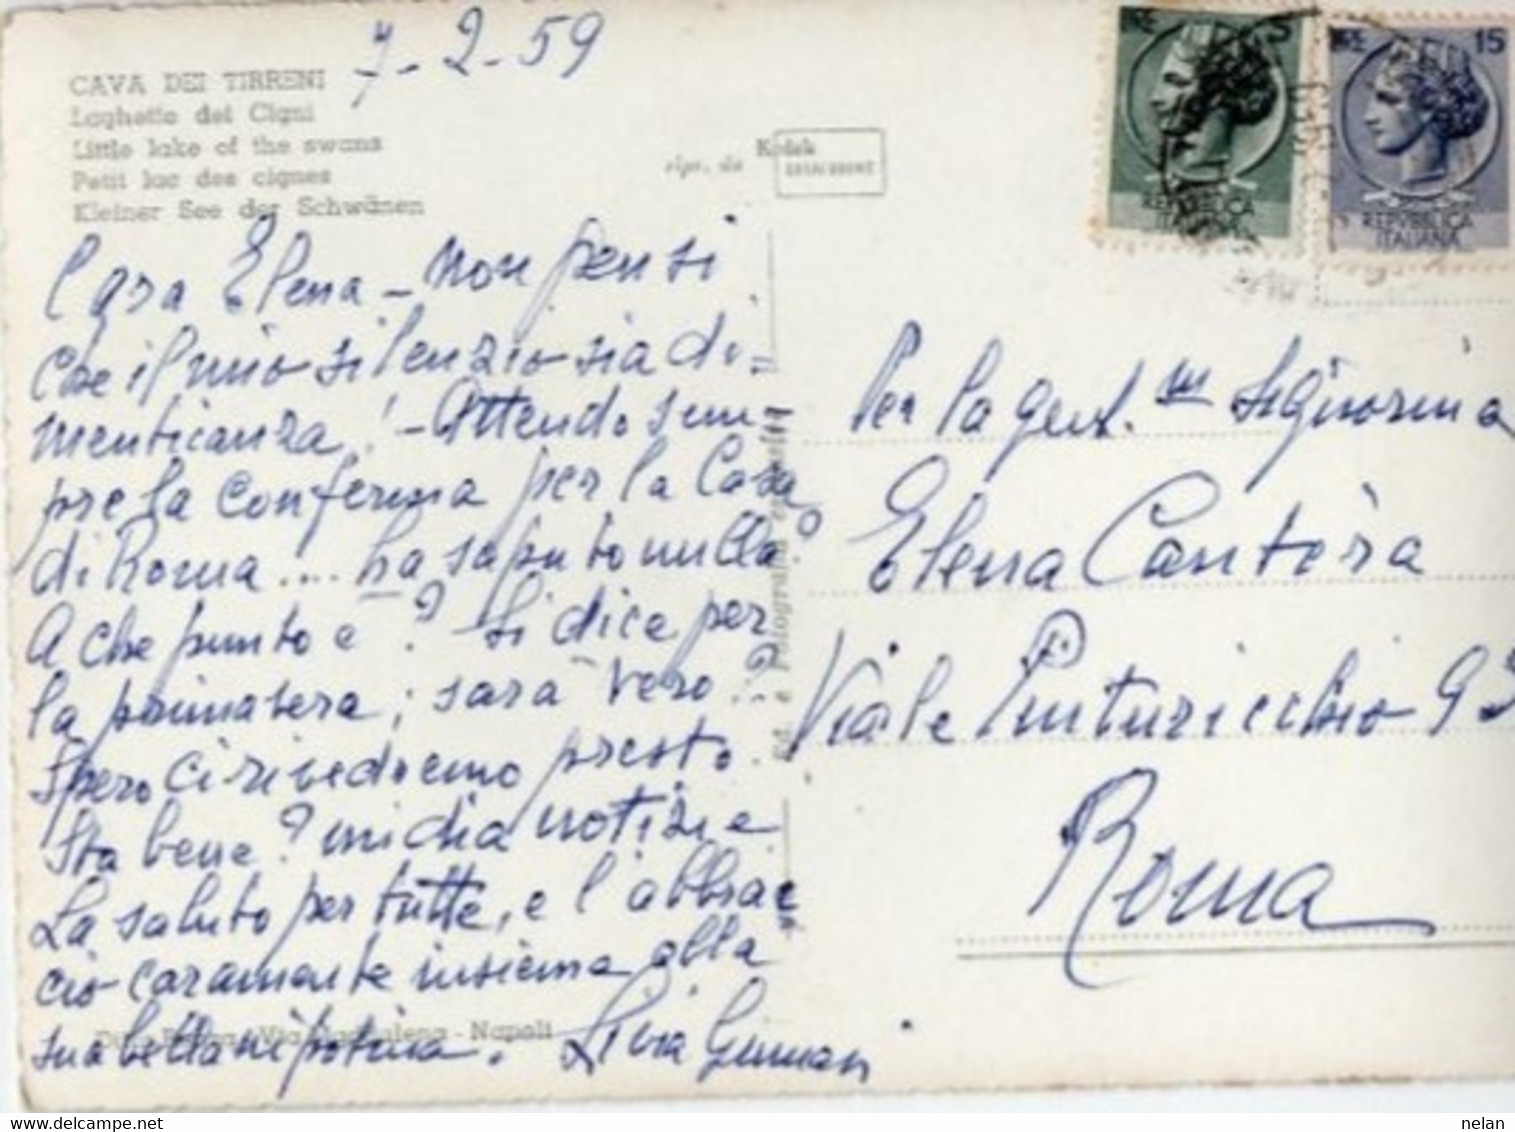 7-2-59
CAVA DEI TIRRENI
Laghetto dei Cigni
Little lake of the swans
Petit lac des cignes
Kleiner See der Schwänen
ripr. da Kodak
EKTACHROME
RE 5
REPVBBLICA
ITALIANA
IRE 15
REPVBBLICA
ITALIANA
Cara Elena - non pensi
che il mio silenzio sia di=
menticanza! - Attendo sem-
pre la conferma per la Casa
di Roma .... ha saputo nulla?
A che punto è? Si dice per
la primavera; sarà vero?
Spero ci rivedremo presto.
Sta bene? mi dia notizie
La saluto per tutte, e l'abbrac
cio caramente insieme alla
sua bella nipotina. Livia
Ed. e Fotografia
Via Maddalena - Napoli
Per la gent.ma Signorina
Elena Cantòra
Viale Pinturicchio 93
Roma
nelan
delcampe.net